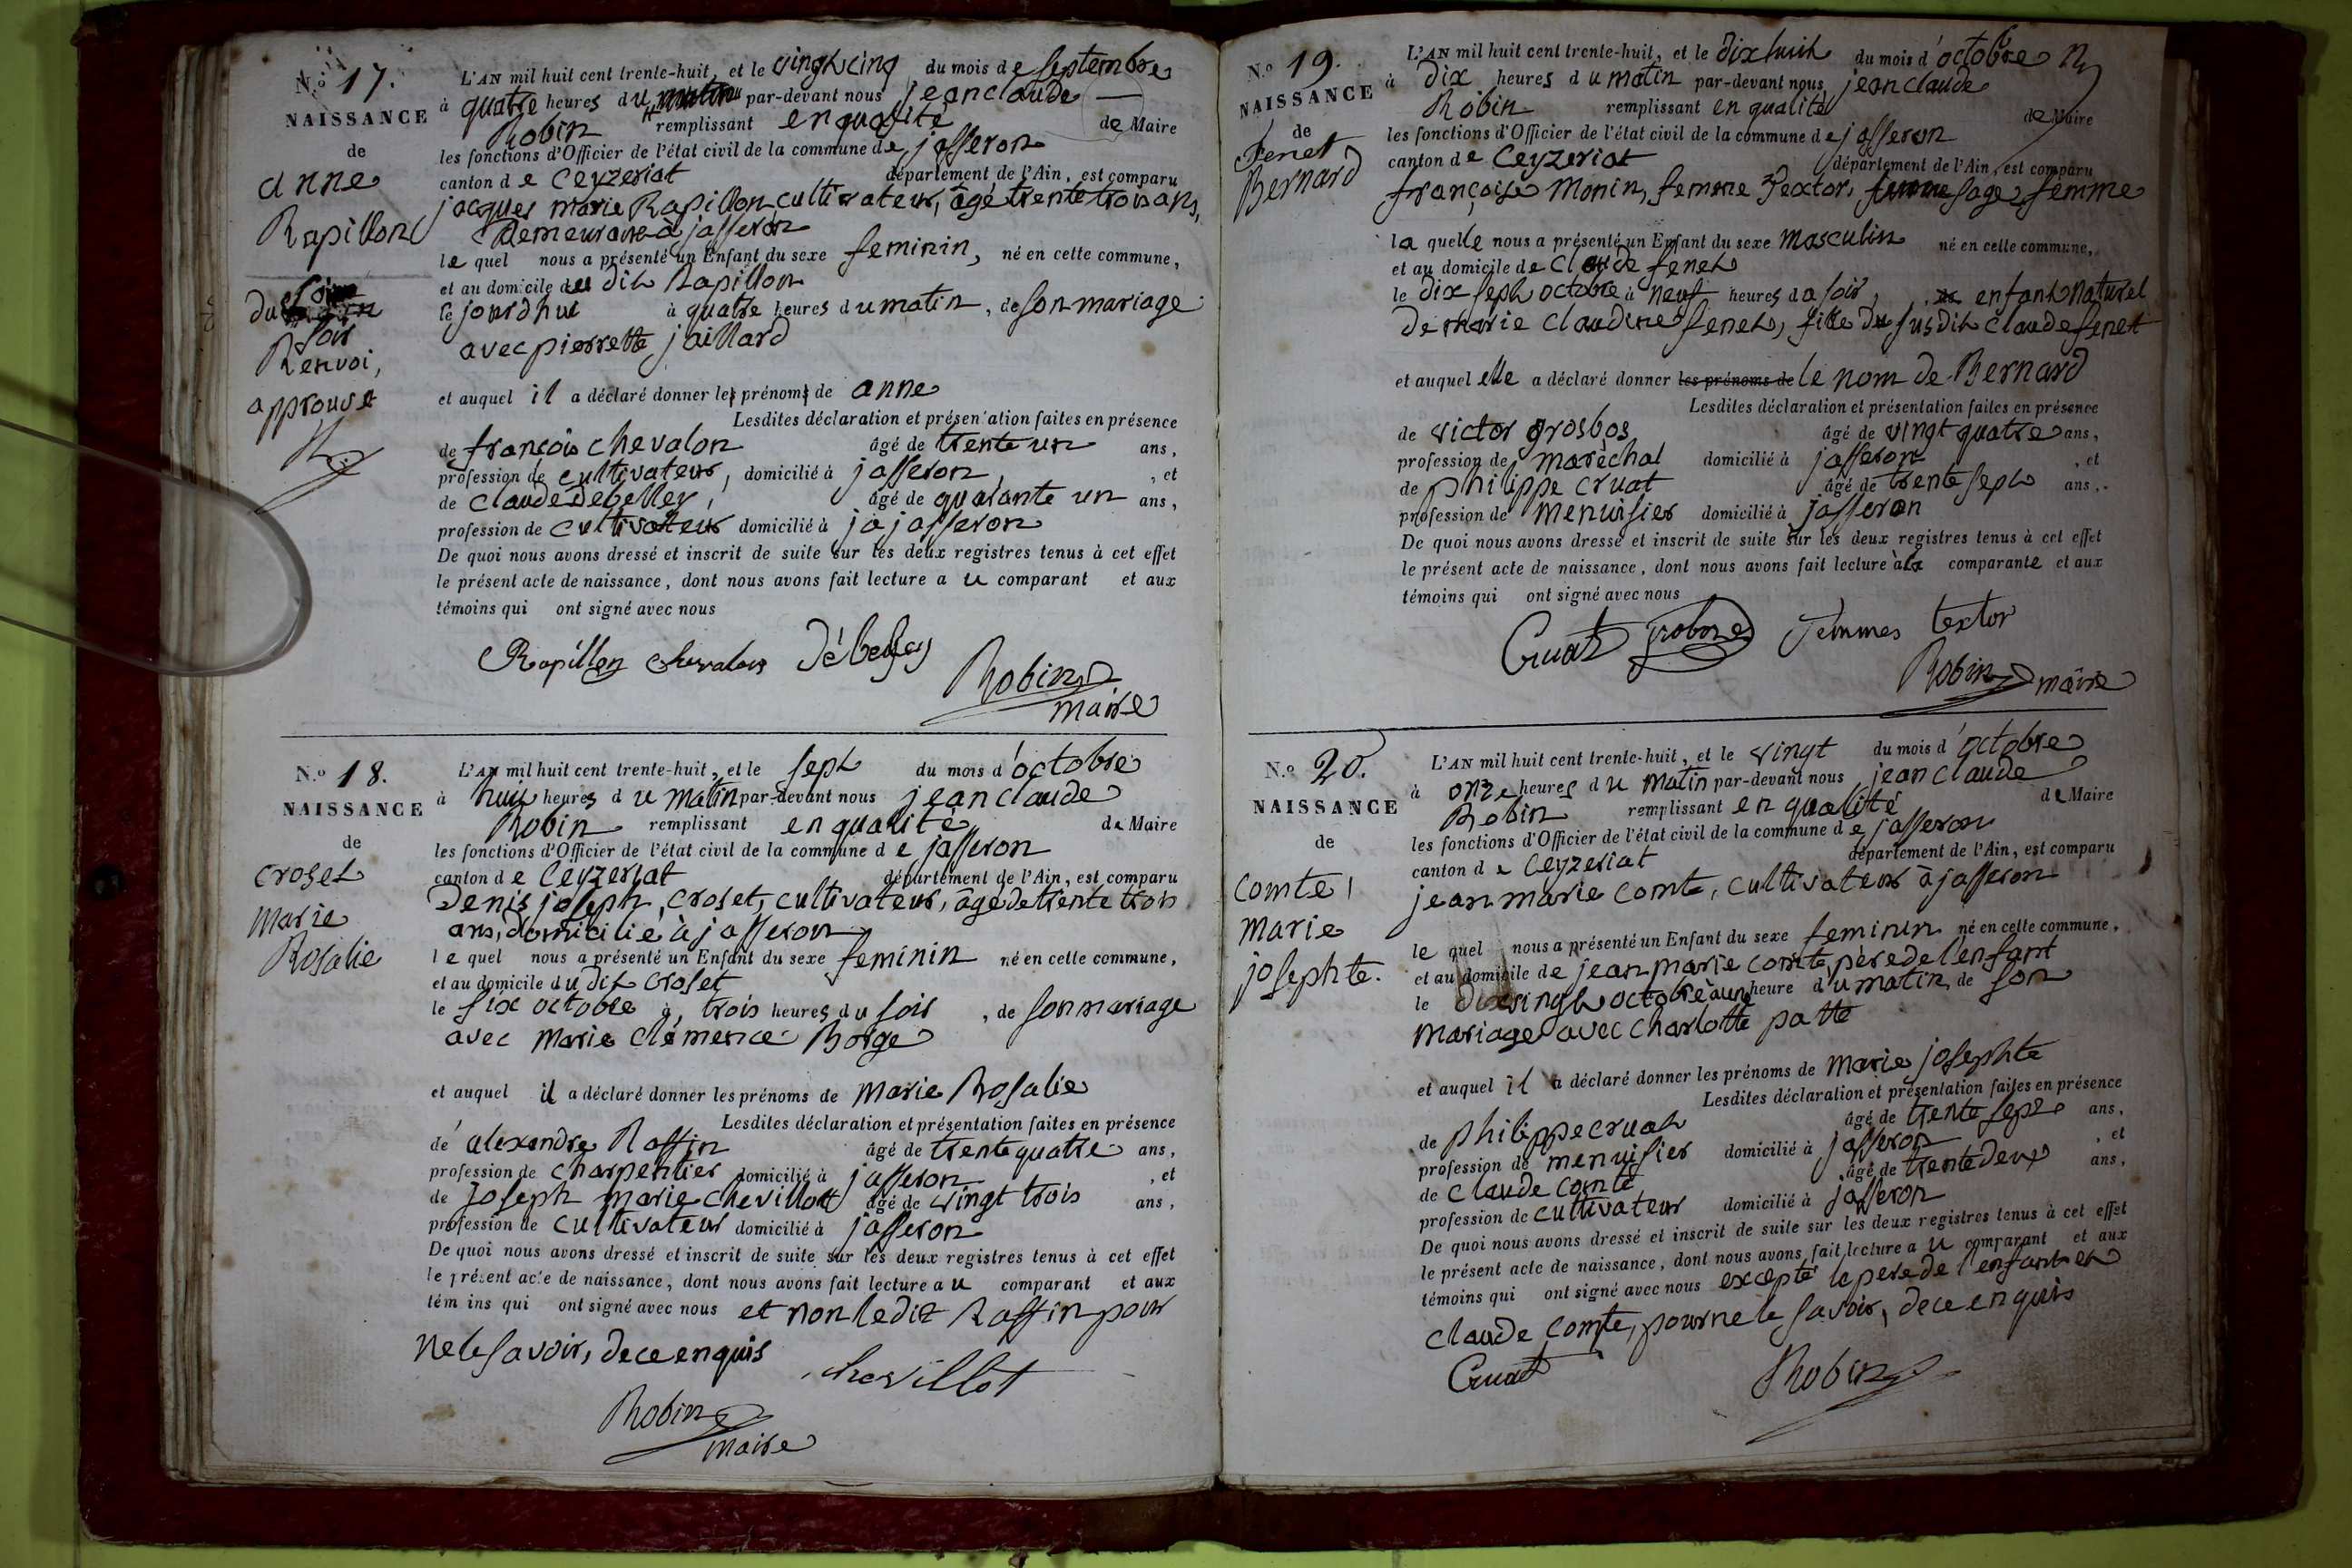 N.o 17.
NAISSANCE
de
anne
Rapillon
du soir
soir
Renvoi,
approuvé
L'AN mil huit cent trente-huit, et le vingt cinq du mois de septembre
à quatre heures du par-devant nous jean claude
Robin remplissant en qualité de Maire
les fonctions d'Officier de l'état civil de la commune de jasseron
canton de Ceyzeriat département de l'Ain, est comparu
jacques marie Rapillon cultivateur, âgé trente trois ans,
demeurant à jasseron
le quel nous a présenté un Enfant du sexe feminin, né en cette commune,
et au domicile du dit Rapillon
le jourdhui à quatre heures du matin, de son mariage
avec pierrette jaillard
et auquel il a déclaré donner les prénoms de anne
Lesdites déclaration et présentation faites en présence
de françois chevalon âgé de trente un ans,
profession de cultivateur, domicilié à jasseron, et
de claude debelley, âgé de quarante un ans,
profession de cultivateur domicilié à jajasseron
De quoi nous avons dressé et inscrit de suite sur les deux registres tenus à cet effet
le présent acte de naissance, dont nous avons fait lecture au comparant et aux
témoins qui ont signé avec nous
Rapillon chevalon Débelley
Robin
maire
N.o 18.
NAISSANCE
de
croset
marie
Rosalie
L'AN mil huit cent trente-huit, et le sept du mois d'octobre
à huit heures du matin par-devant nous jean claude
Robin remplissant en qualité de Maire
les fonctions d'Officier de l'état civil de la commune de jasseron
canton de Ceyzeriat département de l'Ain, est comparu
Denis joseph croset, cultivateur, âgé de trente trois
ans, domicilié à jasseron
le quel nous a présenté un Enfant du sexe feminin né en cette commune,
et au domicile du dit croset
le six octobre à trois heures du soir, de son mariage
avec marie clémence Borge
et auquel il a déclaré donner les prénoms de marie Rosalie
Lesdites déclaration et présentation faites en présence
de alexandre Raffin âgé de trente quatre ans,
profession de charpentier domicilié à jasseron, et
de joseph marie chevillott âgé de vingt trois ans,
profession de cultivateur domicilié à jasseron
De quoi nous avons dressé et inscrit de suite sur les deux registres tenus à cet effet
le présent acte de naissance, dont nous avons fait lecture au comparant et aux
témoins qui ont signé avec nous et non ledit Raffin pour
ne le savoir, de ce enquis
chevillot
Robin
maire
N.o 19.
NAISSANCE
de
Fenet
Bernard
L'AN mil huit cent trente-huit, et le dix huit du mois d'octobre
à dix heures du matin par-devant nous jean claude
Robin remplissant en qualité de Maire
les fonctions d'Officier de l'état civil de la commune de jasseron
canton de Ceyzeriat département de l'Ain, est comparu
françoise Monin, femme Textor, femme sage femme
la quelle nous a présenté un Enfant du sexe masculin né en cette commune,
et au domicile de claude fenet
le dix sept octobre à neuf heures du soir, enfant naturel
de marie claudine fenet, fille du susdit claude fenet
et auquel elle a déclaré donner les prénoms de le nom de Bernard
Lesdites déclaration et présentation faites en présence
de victor grosbos âgé de vingt quatre ans,
profession de maréchal domicilié à jasseron, et
de philippe cruat âgé de trente sept ans,
profession de menuisier domicilié à jasseron
De quoi nous avons dressé et inscrit de suite sur les deux registres tenus à cet effet
le présent acte de naissance, dont nous avons fait lecture à la comparante et aux
témoins qui ont signé avec nous
Cruat femmes textor
Robin maire
N.o 20.
NAISSANCE
de
comte
marie
josephte.
L'AN mil huit cent trente-huit, et le vingt du mois d'octobre
à onze heures du matin par-devant nous jean claude
Robin remplissant en qualité de Maire
les fonctions d'Officier de l'état civil de la commune de jasseron
canton de Ceyzeriat département de l'Ain, est comparu
jean marie comte, cultivateur à jasseron
le quel nous a présenté un Enfant du sexe feminin né en cette commune,
et au domicile de jean marie comte, père de l'enfant
le vingt octobre à une heure du matin, de son
mariage avec charlotte patte
et auquel il a déclaré donner les prénoms de marie josephte
Lesdites déclaration et présentation faites en présence
de philippe cruat âgé de trente sept ans,
profession de menuisier domicilié à jasseron, et
de claude comte âgé de trente deux ans,
profession de cultivateur domicilié à jasseron
De quoi nous avons dressé et inscrit de suite sur les deux registres tenus à cet effet
le présent acte de naissance, dont nous avons fait lecture au comparant et aux
témoins qui ont signé avec nous excepté le pere de l'enfant et
claude comte, pour ne le savoir, de ce enquis
Cruat Robin